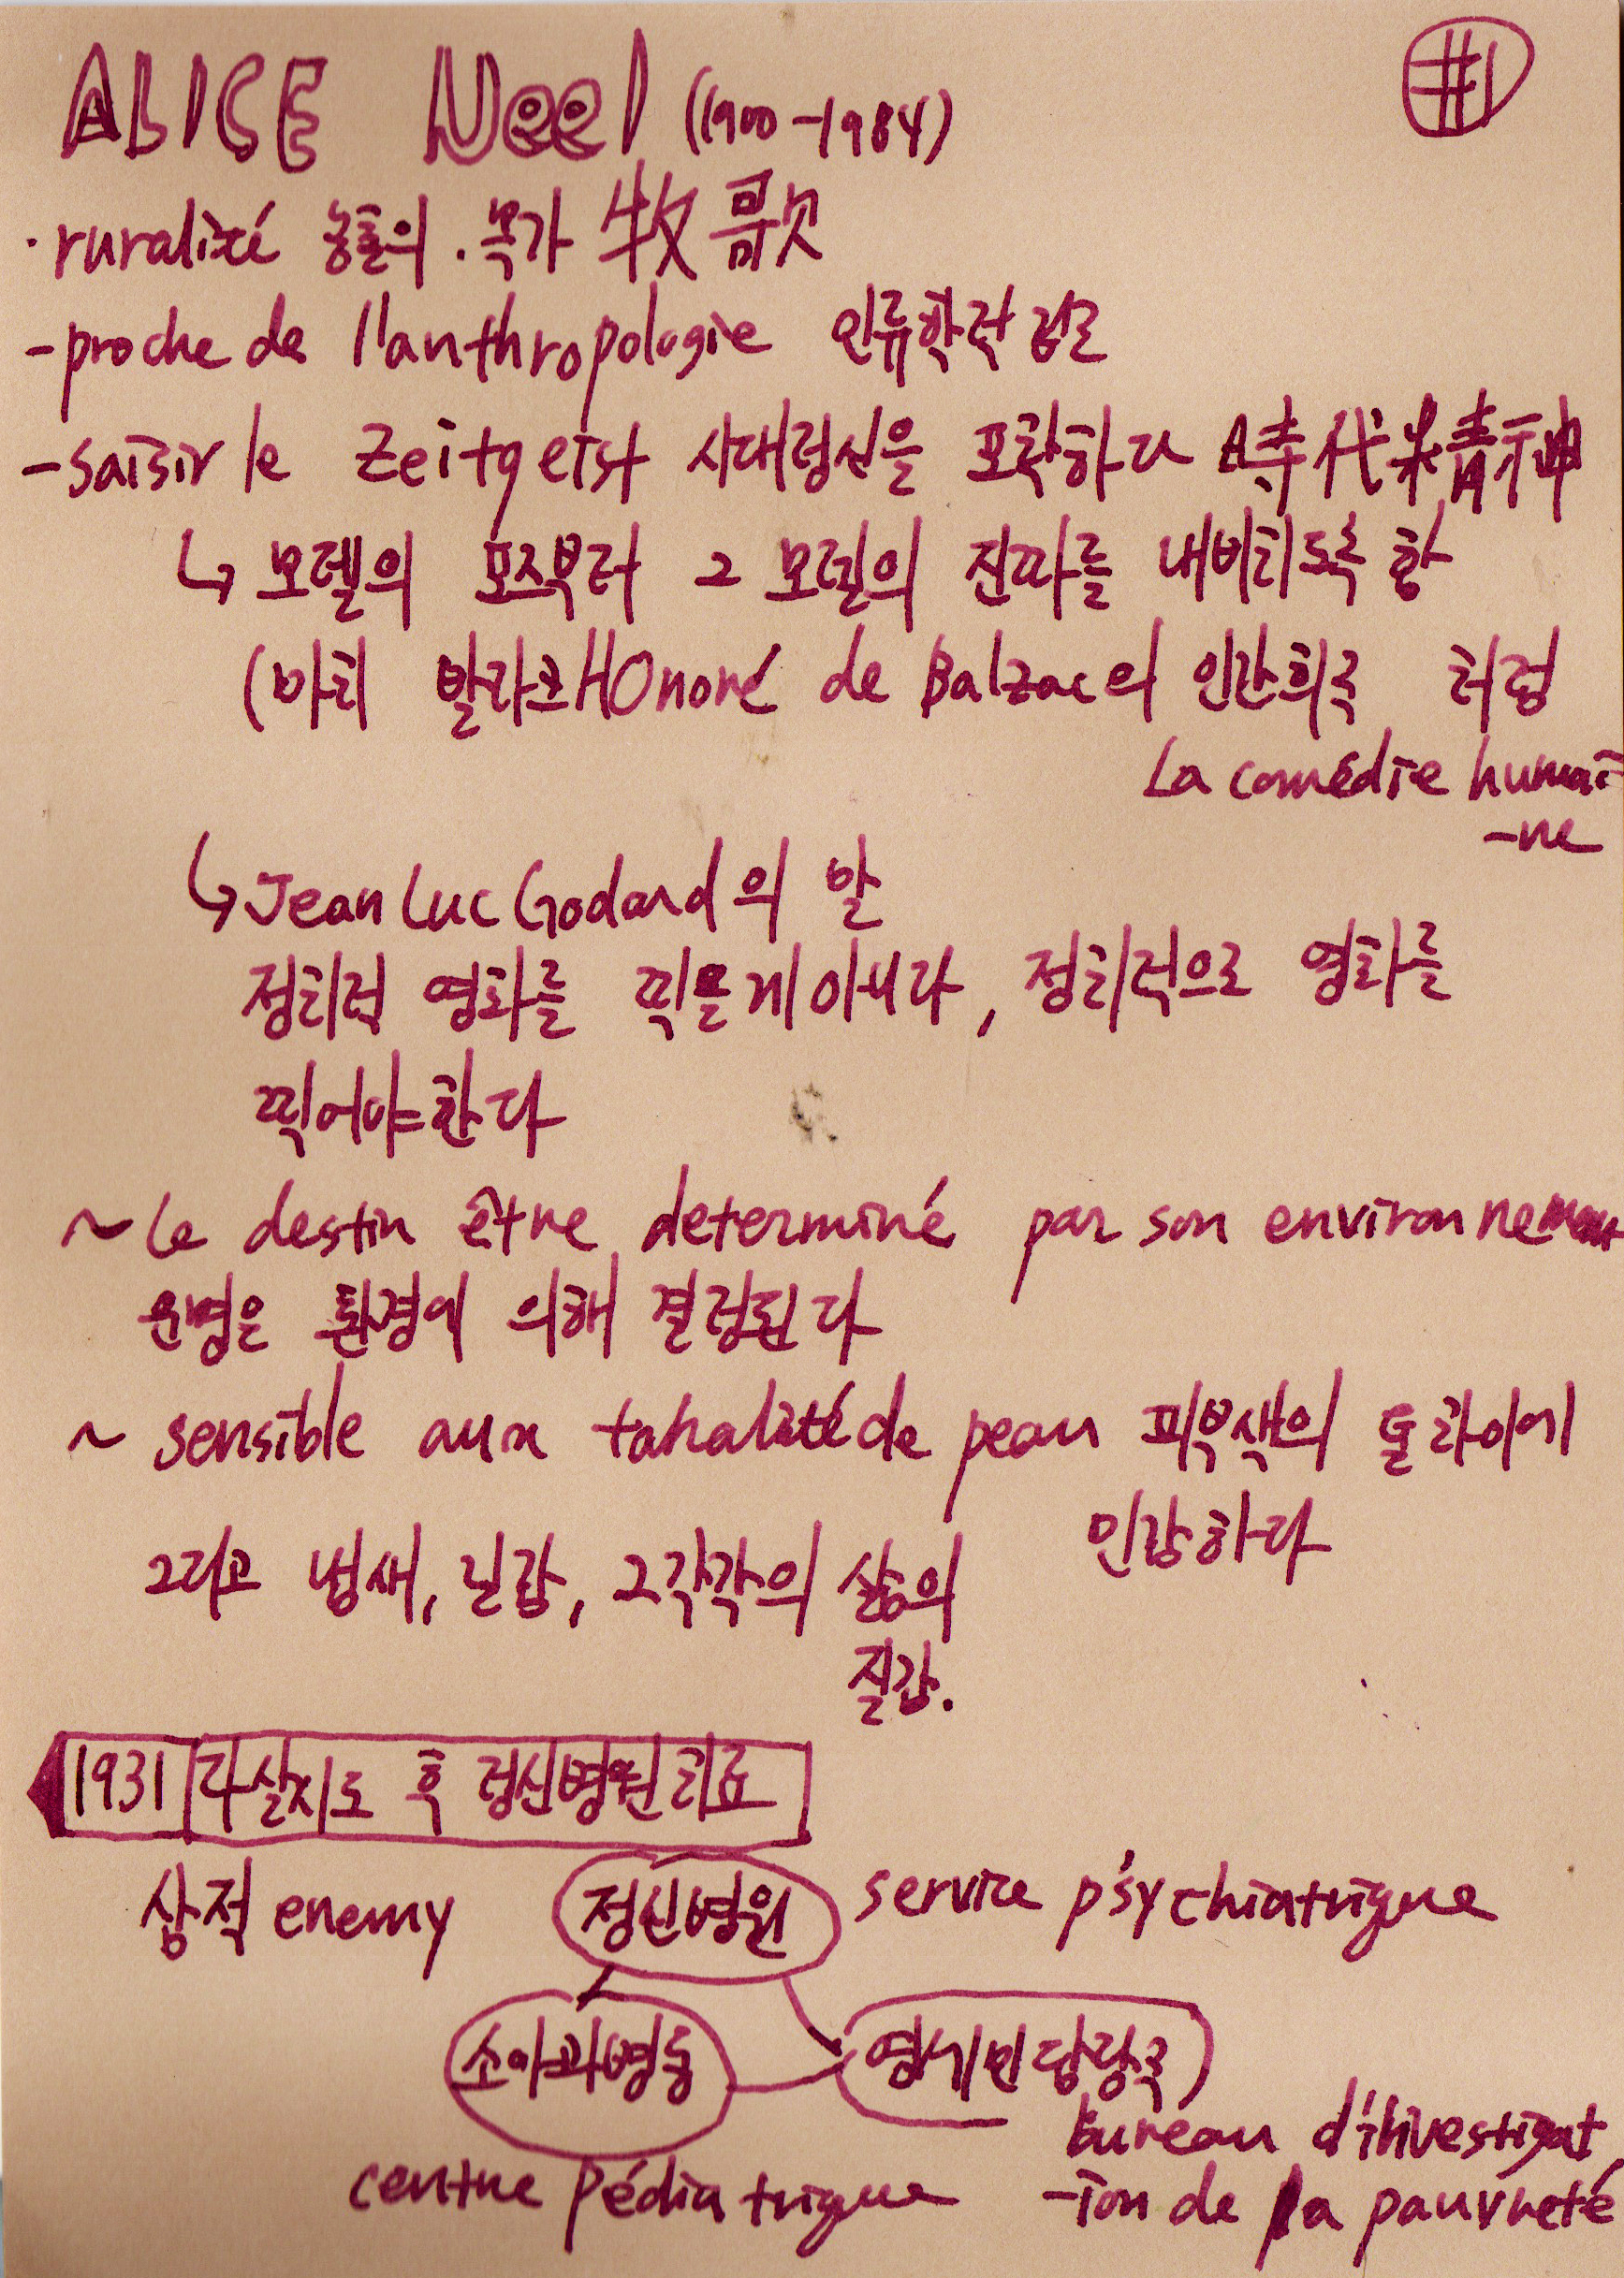 ALICE Neel (1900-1984)
#1
·ruralité 농촌의 . 목가 牧歌
-proche de l'anthropologie 인류학적 접근
-saisir le Zeitgeist 시대정신을 포착하다 時代精神
↳ 모델의 포즈부터 그 모델의 진짜를 내비치도록 함
(마치 발자크 HOnoré de Balzac의 인간희극 처럼
La comédie humai
-ne
↳ Jean Luc Godard의 말
정치적 영화를 찍을게 아니라, 정치적으로 영화를
찍어야한다
~ Le destin être determiné par son environnement
운명은 환경에 의해 결정된다
~ sensible aux tonalité de peau 피부색의 톤 차이에
민감하다
그리고 냄새, 인간, 그 각각의 삶의
질감.
1931 자살시도 후 정신병원치료
삼적 enemy 정신병원 service psychiatrique
소아과병동 영세민 담당국
bureau d'investigat
centre pédiatrique -ion de la pauvreté